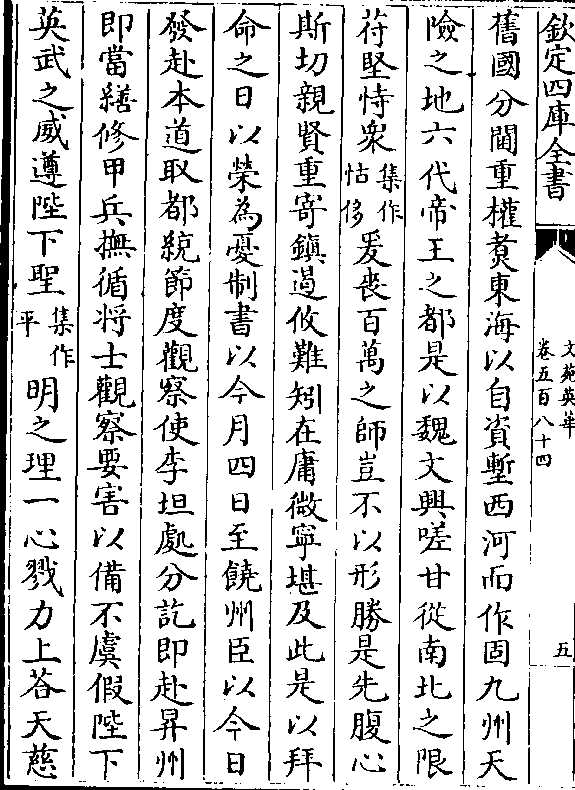 欽定四庫全書
文苑英華
卷五百八十四
五
舊國分閫重權煑東海以自資塹西河而作固九州天
險之地六代帝王之都是以魏文興嗟甘從南北之限
苻堅恃衆集作怙侈爰喪百萬之師豈不以形勝是先腹心
斯切親賢重寄鎮遏攸難矧在庸微寧堪及此是以拜
命之日以榮為憂制書以今月四日至饒州臣以今日
發赴本道取都統節度觀察使李坦處分訖即赴昇州
即當繕修甲兵撫循将士觀察要害以備不虞假陛下
英武之威遵陛下聖集作平明之理一心戮力上荅天慈